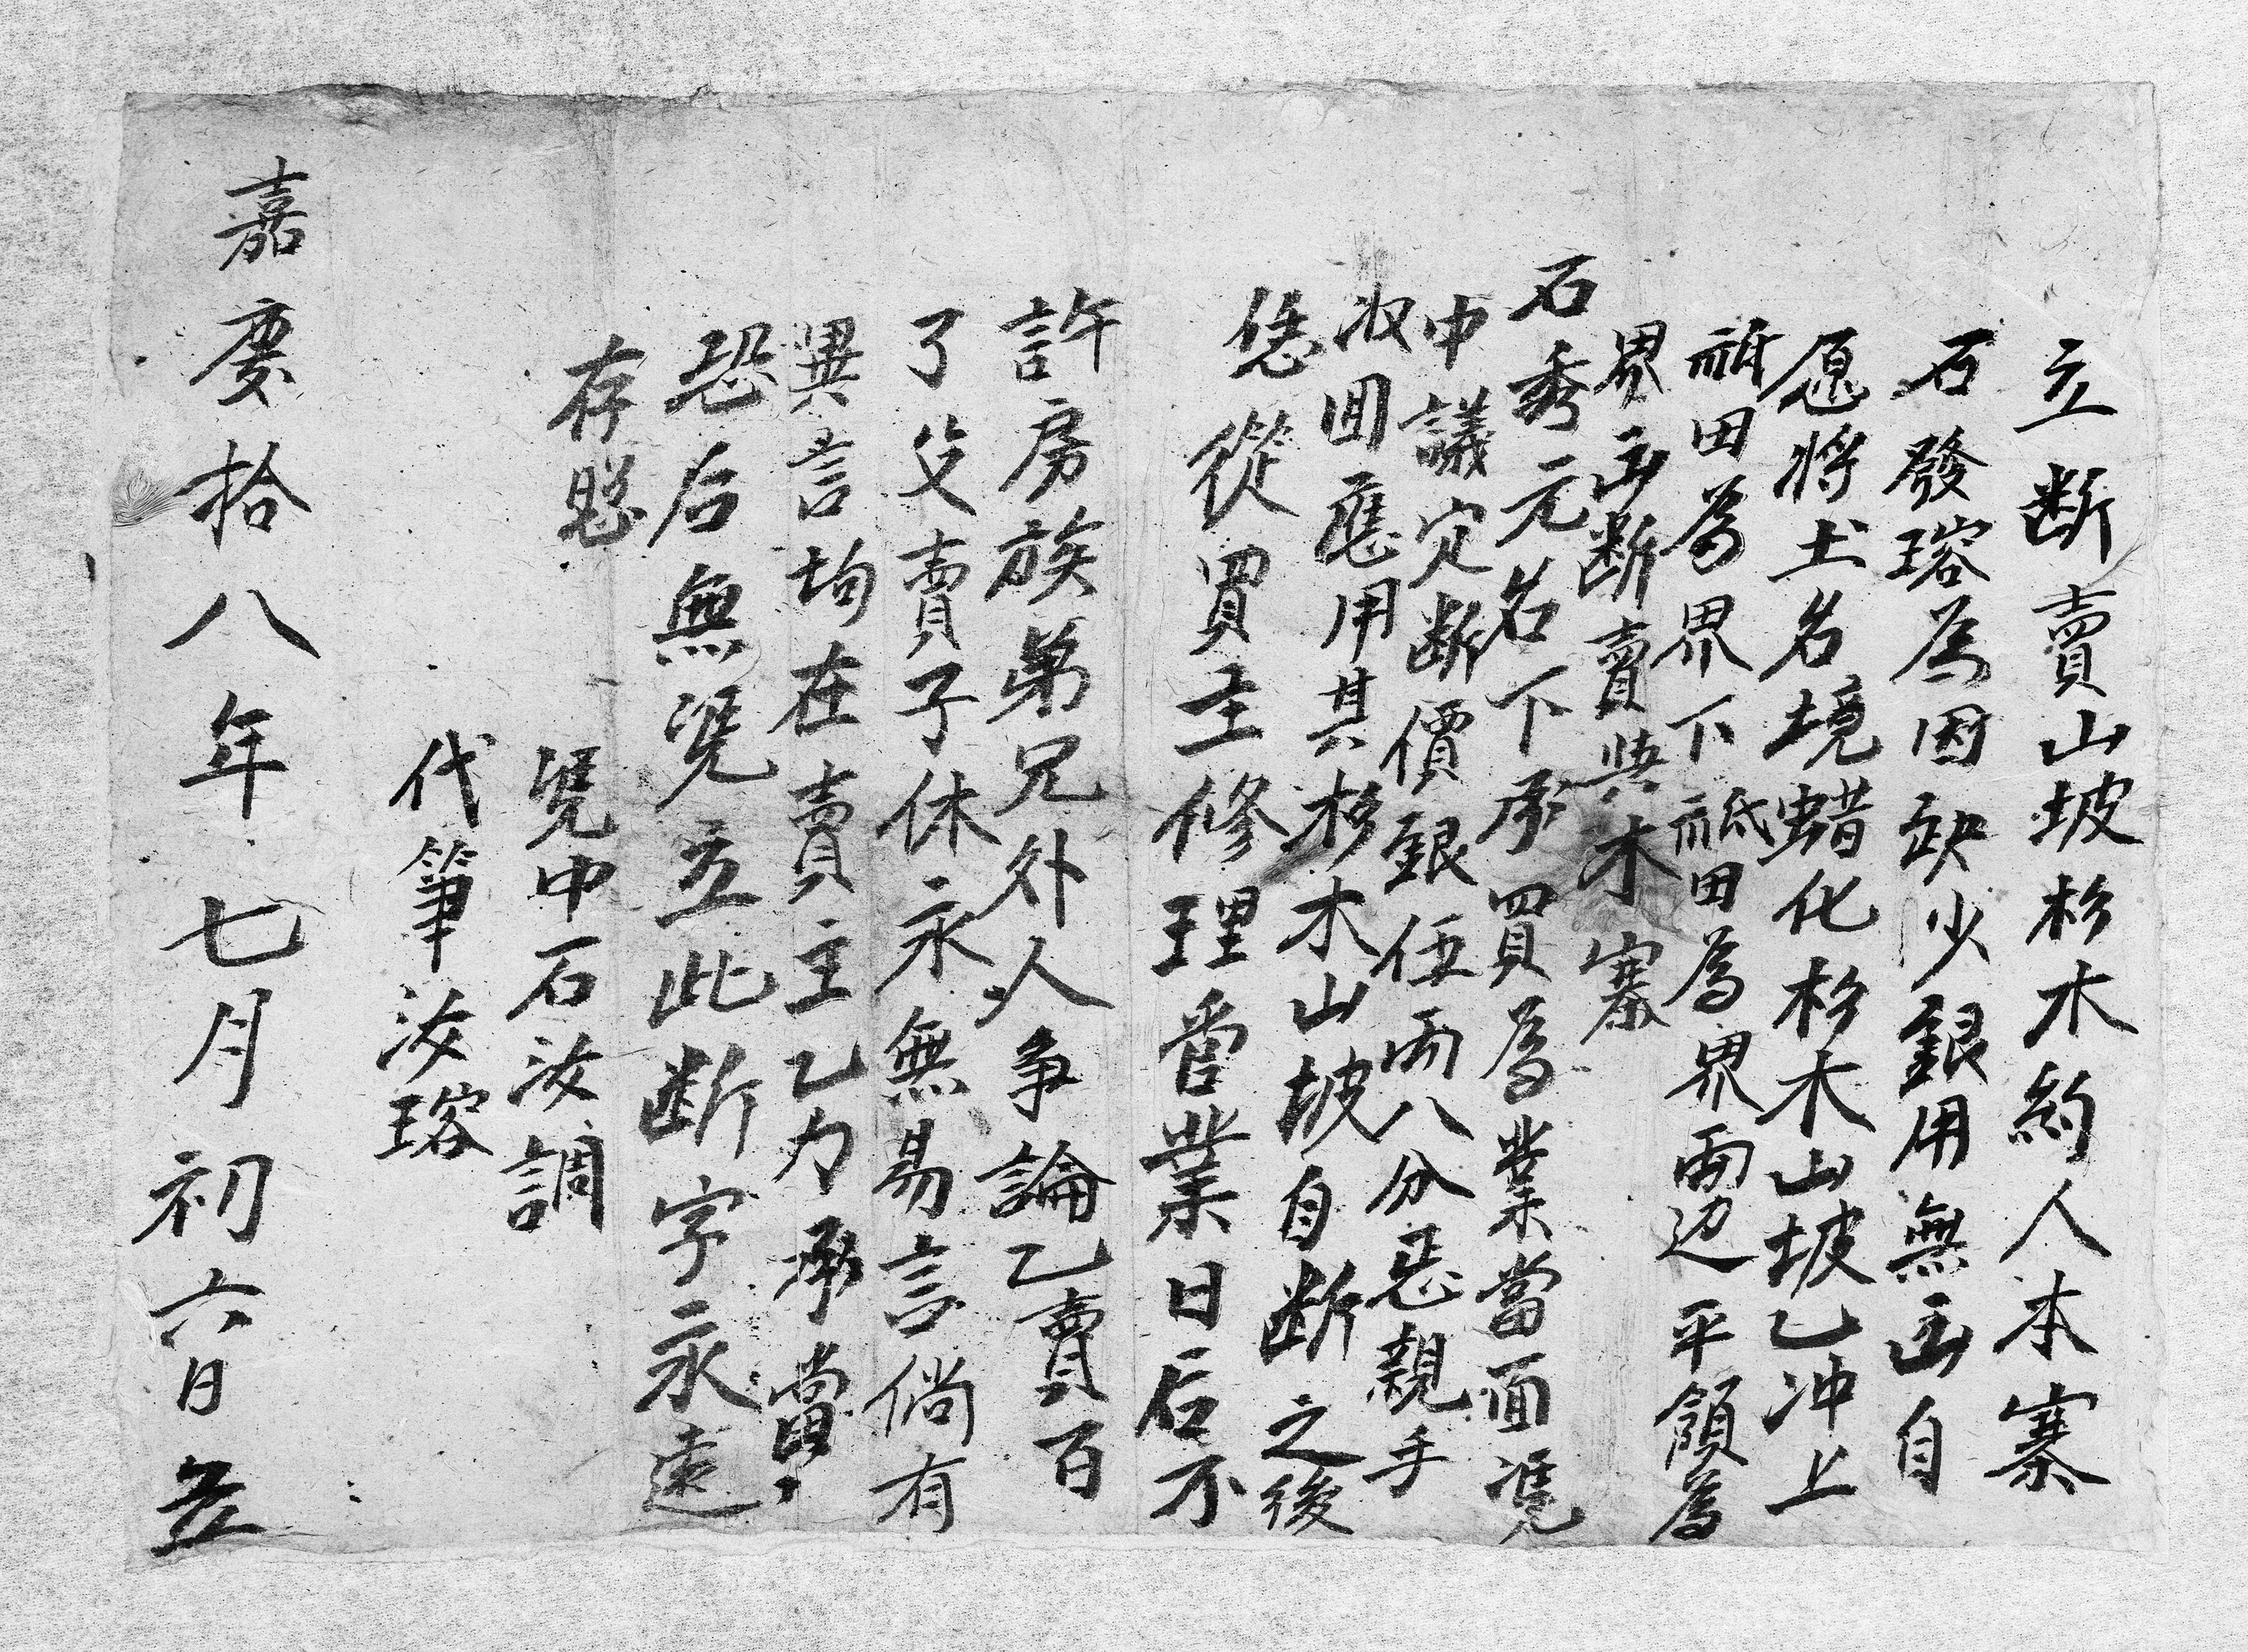 立断賣山坡杉木約人本寨
石發瑢為因缺少銀用無出自
愿将土名境蜡化杉木山坡乙冲上
祗田為界下祗田為界両边平領為
界出断賣與木寨
石秀元名下承買為業當面凴
中議定断價銀伍両八分惡親手
收回應用其杉木山坡自断之後
恁從買主修理管業日后不
許房族弟兄外人争論乙賣百
了父賣子休永無易言倘有
異言均在賣主乙力承當
恐后無凴立此断字永遠
存照
凴中石汝調
代筆汝瑢
嘉慶拾八年七月初六日立